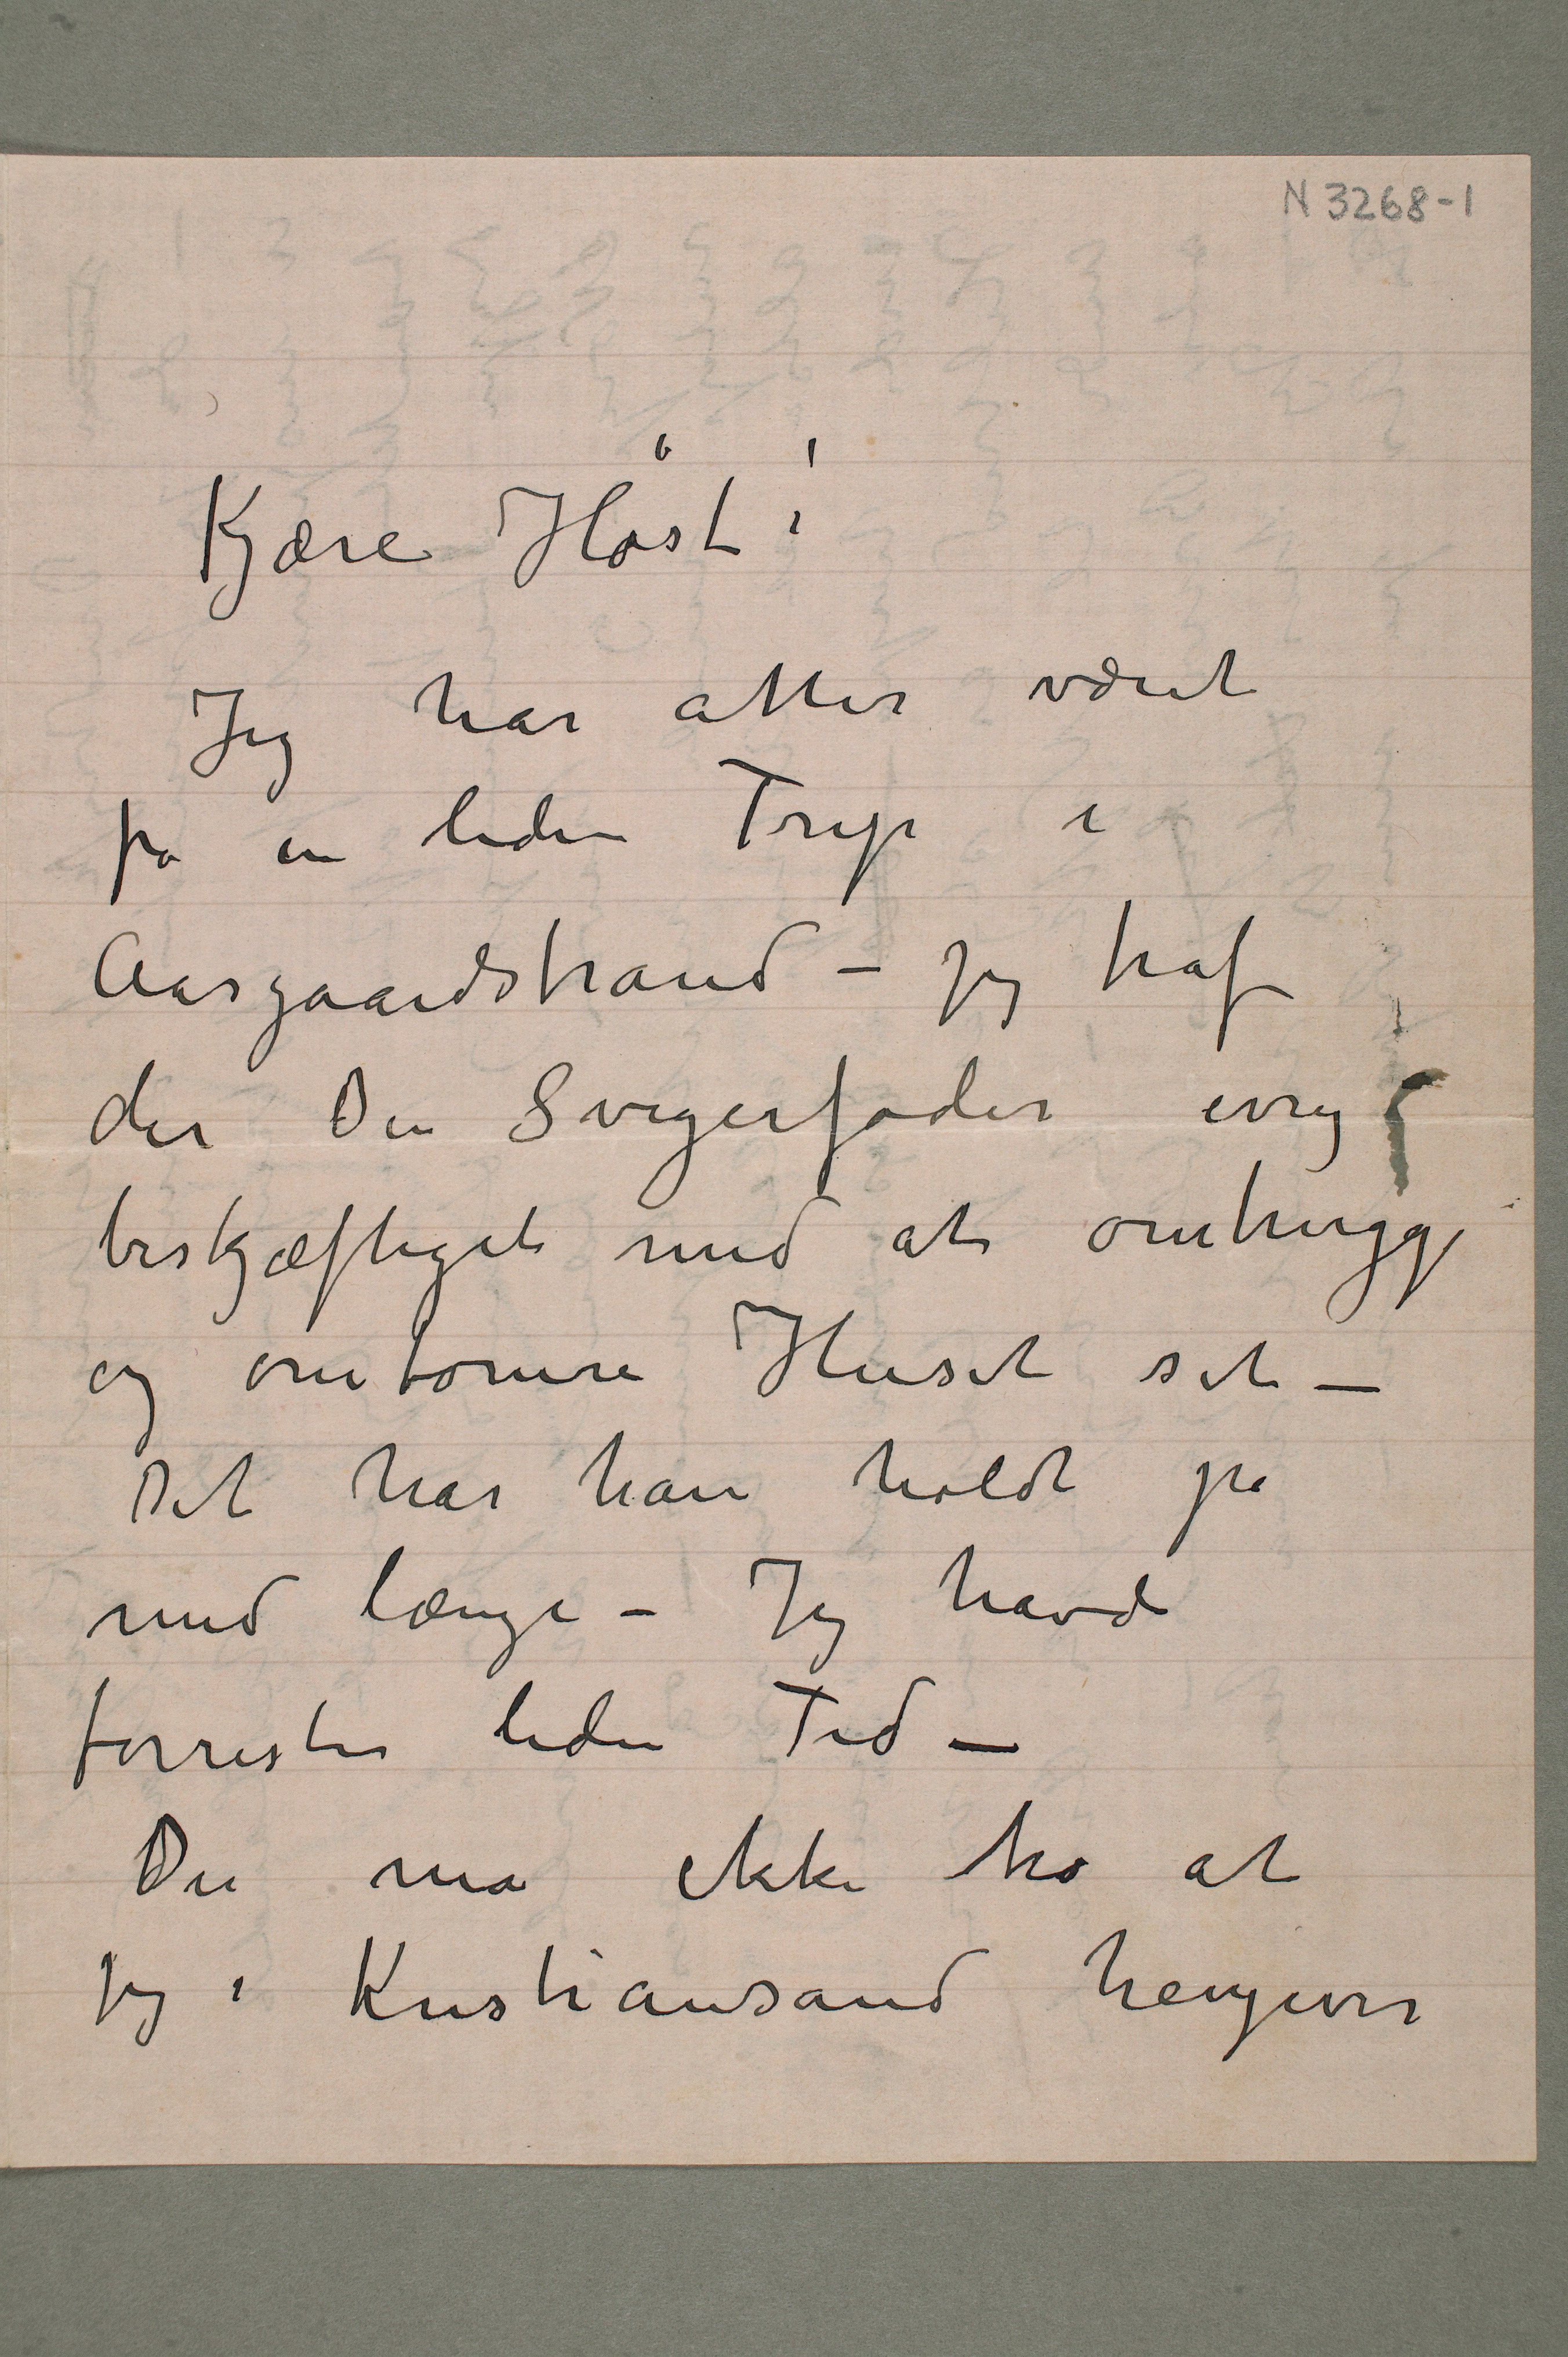 N 3268-1
Kjære Høst!
Jeg har atter været
på en liden Trip i
Aasgaardstrand – jeg traf
der Din Svigerfader ivrig
beskjæftiget med at ombygge
og omtømre Huset sit –
Det har han holdt på
med længe – Jeg havde
forresten liden Tid –
Du må ikke tro at
jeg i Kristiansand hengiver